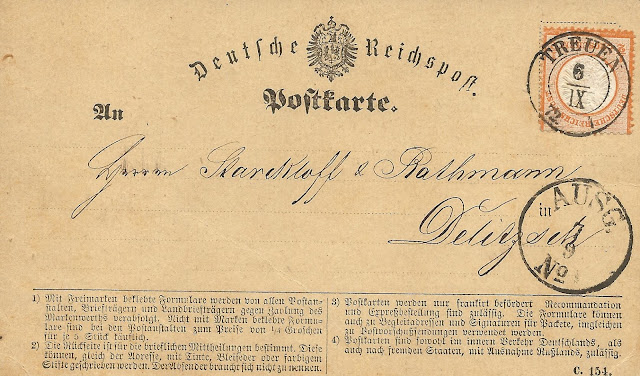 Deutsche Reichspost.
Postkarte.
TREUEN
6
IX
72
An
Herren Starckloff & Rathmann
in
Delitzsch
AUSG.
7
9
No 1
1) Mit Freimarken beklebte Formulare werden von allen Postan-
stalten, Briefträgern und Landbriefträgern gegen Zahlung des
Markenwerths verabfolgt. Nicht mit Marken beklebte Formu-
lare sind bei den Postanstalten zum Preise von ¼ Groschen
für je 5 Stück käuflich.
2) Die Rückseite ist für die brieflichen Mittheilungen bestimmt. Diese
können, gleich der Adresse, mit Tinte, Bleifeder oder farbigem
Stifte geschrieben werden. Der Absender braucht sich nicht zu nennen.
3) Postkarten werden nur frankirt befördert. Recommandation
und Expreßbestellung sind zulässig. Die Formulare können
auch zu Begleitadressen und Signaturen für Packete, ingleichen
zu Postvorschußsendungen verwendet werden.
4) Postkarten sind sowohl im innern Verkehr Deutschlands, als
auch nach fremden Staaten, mit Ausnahme Rußlands, zulässig.
C. 154.